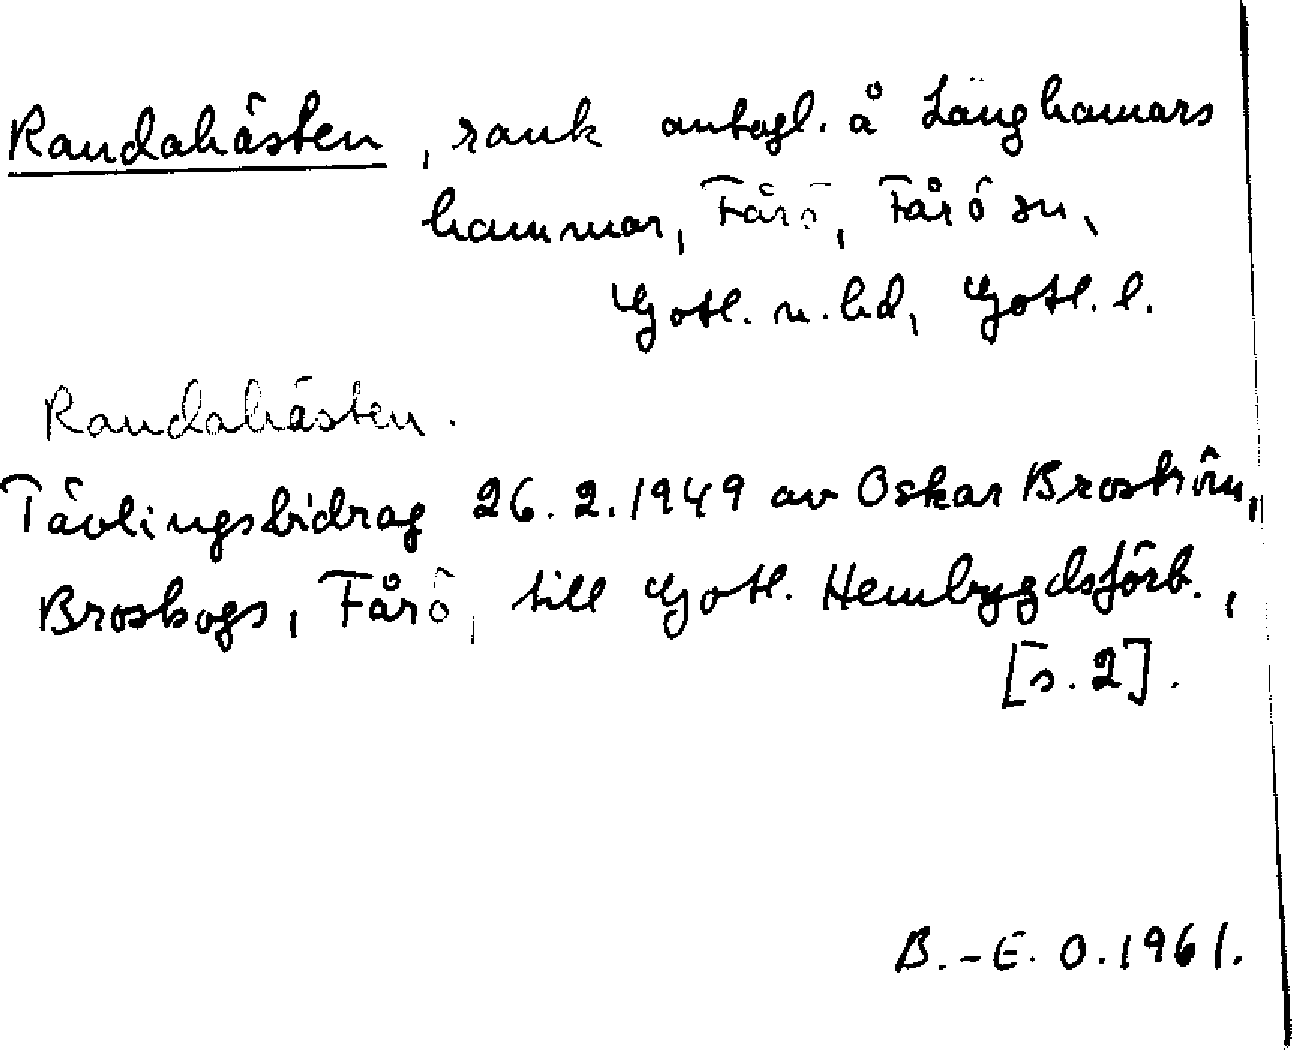 Randahästen, rauk antagl. å Langhamars
hammar, Fårö, Fårö sn,
Gotl. n. hd, Gotl. l.
Randahästen.
Tävlingsbidrag 26.2.1949 av Oskar Broström,
Brosbogs, Fårö, till Gotl. Hembygdsförb.,
[s. 2].
B.-E. O. 1961.